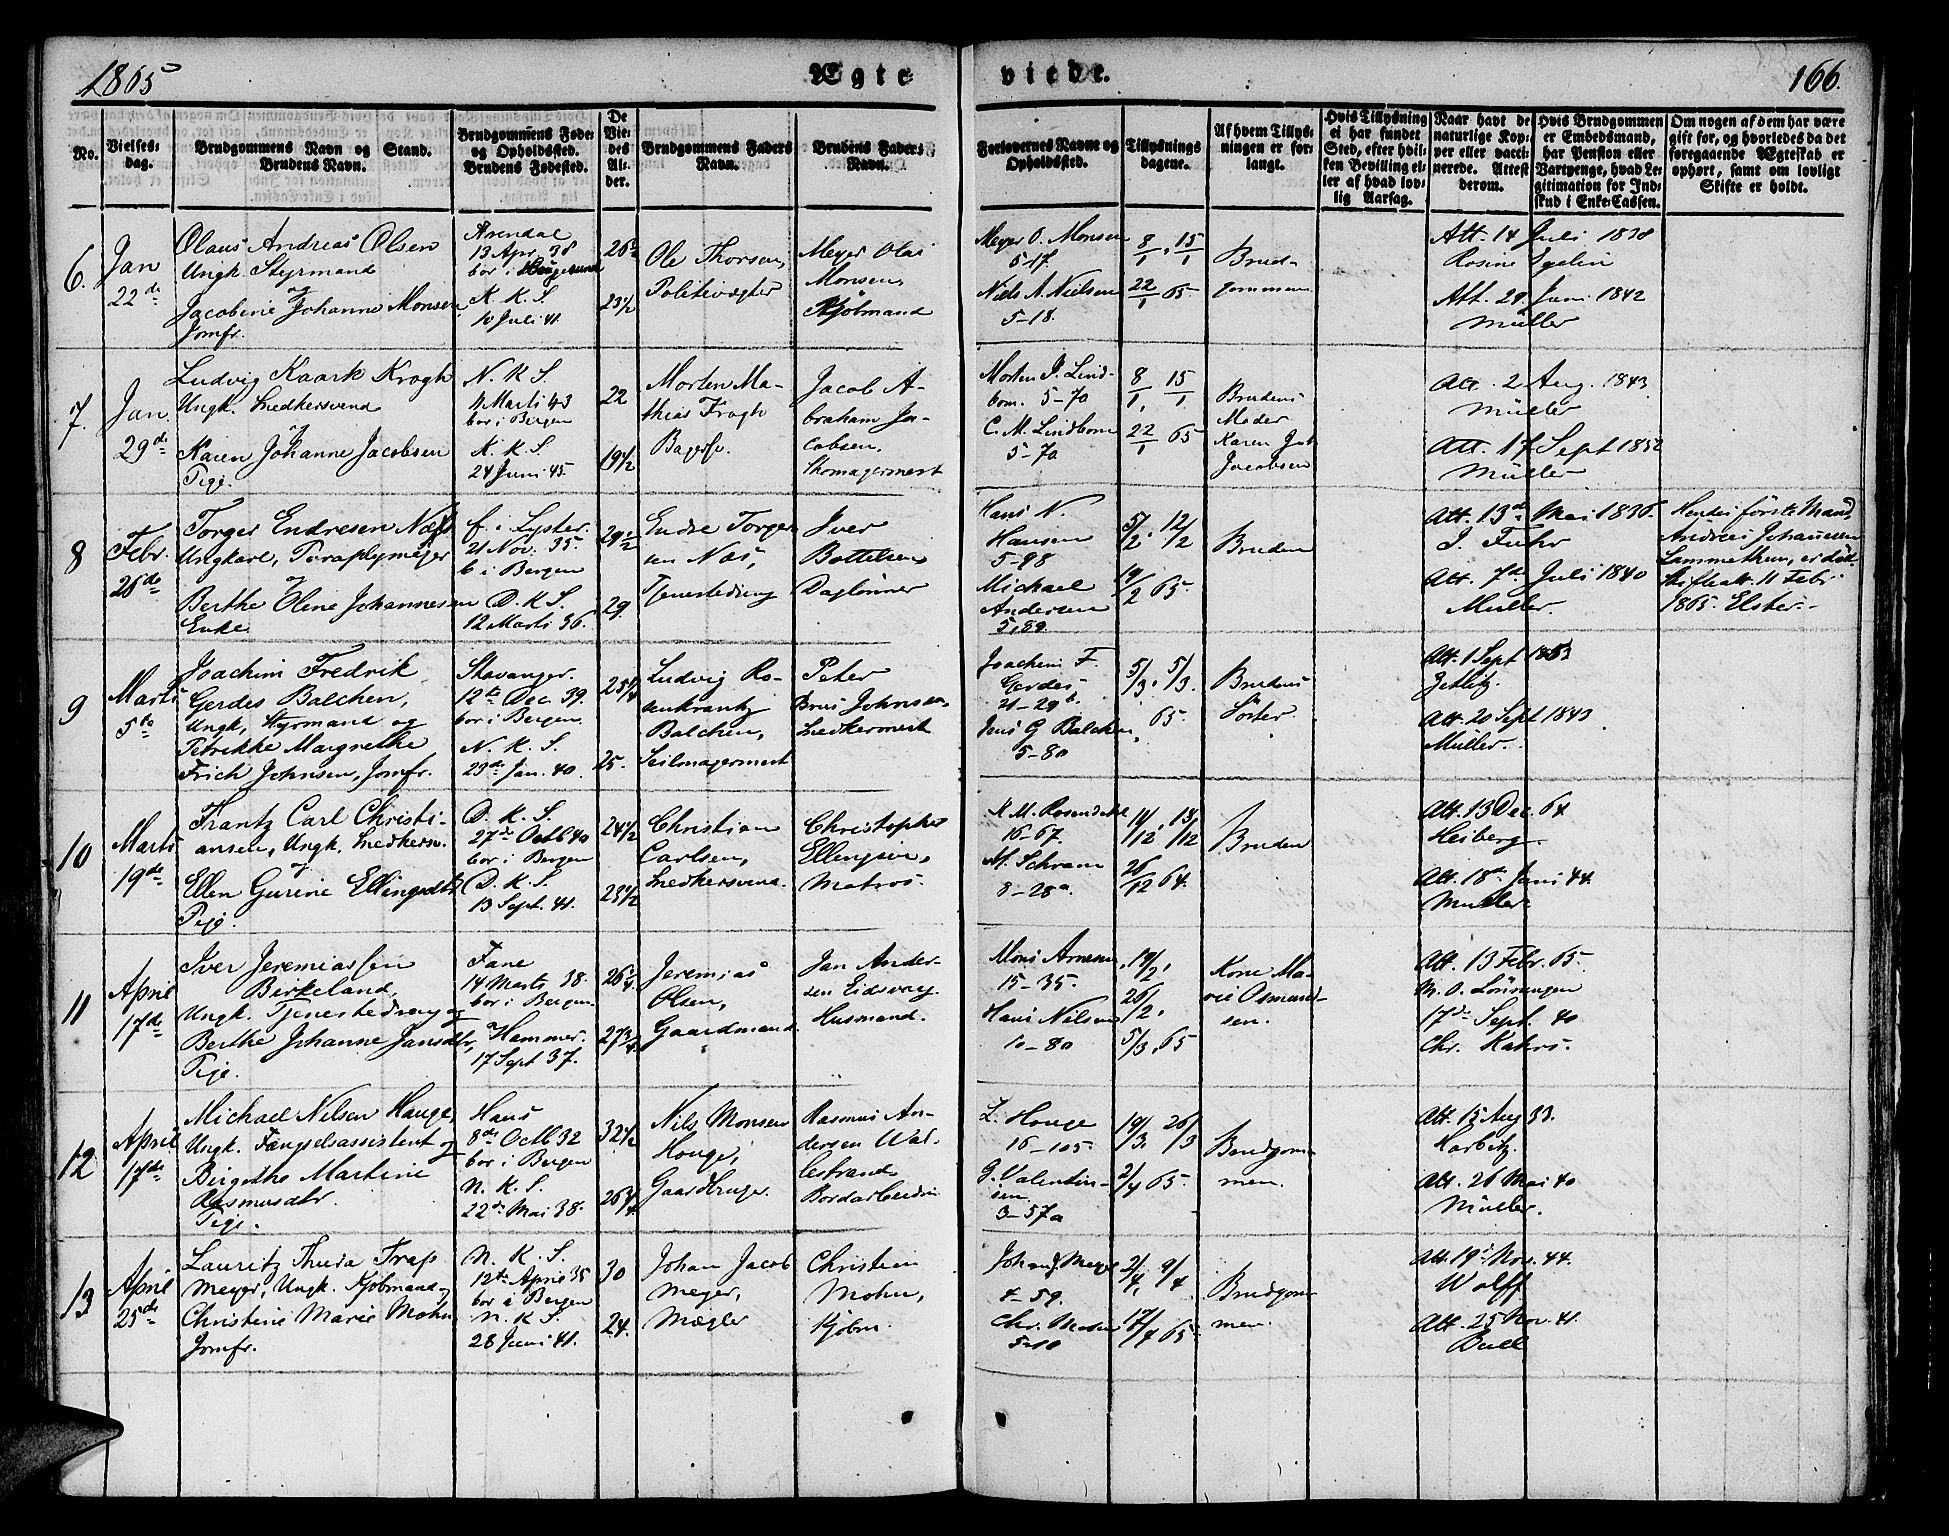 1865
Ægte-
viede.
166.
No.
Vielses-
dag.
Brudgommens Navn og Stand.
Brudens Navn.
Brudgommens Føde-
og Opholdssted.
Brudens Fødested.
De
Vie-
des
Al-
der.
Brudgommens Faders
Navn.
Brudens Faders
Navn.
Forlovernes Navne og
Opholdssted.
Tillysnings
dagene.
Af hvem Tillys-
ningen er for-
langt.
Hvis Tillysning
ei har fundet
Sted, efter hvil-
ken Bevilling el-
ler af hvad lov-
lig Aarsag.
Naar havt de
naturlige Kop-
per eller vacci-
nerede. Attest
derom.
Hvis Brudgommen
er Embedsmand,
har Pension eller
Vartpenge, hvad Le-
gitimation for Ind-
skud i Enke-Cassen.
Om nogen af dem har være
gift før, og hvorledes da det
foregaaende Ægteskab er
ophørt, samt om lovligt
Skifte er holdt.
6.
Jan
22de
Olaus Andreas Olsen
Ungk. Styrmand
og
Jacobine Johanne Monsen
Jomfr.
Arendal
13 Apr. 38
bor i Haugesund
N. K. S.
10 Juli 41.
26½
23½
Ole Thorsen,
Politivægter
Meyer Olai
Monsen,
Kjøbmand
Meyer O. Monsen
5-17.
Niels A. Nielsen
5-18.
8/1, 15/1
22/1 65.
Brud-
gommen
Att. 14 Juli 1838
Rosine
Att. 29 Juni 1842
Müller
7.
Jan.
29de
Ludvig Kaark Krogh
Ungk. Snedkersvend
og
Karen Johanne Jacobsen
Pige.
N. K. S.
Marti 43
bor i Bergen
N. K. S.
24 Juni 45.
22
19½
Morten Ma-
thias Krogh
Bagersv.
Jacob A-
braham Ja-
cobsen,
Skomagermest
Morten J. Lind-
bom. 5-70
C. M. Lindbom
5-70
8/1, 15/1
22/1 65
Brudens
Moder
Karen
Jacobsen
Att. 2 Aug. 1843
Müller
Att. 17 Sept 1852
Müller
8
Febr.
26de
Torger Endresen Næs
Ungkarl, Paraplymager
og
Berthe Oline Johannesen
Enke.
f. i Lyster.
21 Nov. 35.
b i Bergen
D. K. S.
12 Marti 36.
29½
29.
Endre Torger
sen Næs,
Tjenestedreng
Iver
Bottelsen
Daglønner
Hans N.
Hansen
5-98
Michael
Andersen
5,89
5/2. 12/2
19/2 65.
Bruden
Att. 13de Mai 1836.
J. Fuhr
Att. 7de Juli 1840
Müller.
Hendes første Mand
Andreas Johannesen
Lammethun, er død.
Skifteatt. 11 Febr.
1865. Elster.
9
Marti
5te
Joachim Fredrik
Gerdes Balchen,
Ungk, Styrmand og
Petrikke Margrethe
Frich Johnsen, Jomfr.
Stavanger.
12te Dec. 39.
bor i Bergen.
N. K. S.
29de Jan. 40.
25¼
25.
Ludvig Ro-
senkrantz
Balchen,
Seilmagermest
Peter
Brun Johnsen
Snedkermest
Joachim F.
Gerdes
21-29b.
Jens G Balchen,
5-80
5/3. 5/3.
65.
Brudens
Söster.
Att. 1 Sept 1853
Zetlitz.
Att. 20 Sept 1843
Müller.
10
Marti
19de
Frantz Carl Christi-
ansen, Ungk. Snedkersv.
og
Ellen Gurine Ellingsdtr
Pige.
D. K. S.
27de Octb 40
bor i Bergen
D. K. S.
13 Sept. 41.
24½
23½
Christian
Carlsen,
Snedkersvend.
Christopher
Ellingsen,
Matros.
K. M. Rosendahl
16-67.
M. Schram
8-28a.
/12. /12
26/12 64.
Bruden
Att. 13 Dec. 64
Heiberg.
Att. 18de Juni 44.
Müller
11
April
17de
Iver Jeremiassen
Birkeland,
Ungk. Tjenestedreng og
Berthe Johanne Jansdtr,
Pige.
Fane
14 Marts 38.
bor i Bergen.
Hammer.
17 Sept 37.
27¾
Jeremias
Olsen,
Gaardmand
Jan Ander-
sen Eidsvaag
Husmand.
Mons Arnesen
15-35.
Hans Nilsen
10-80
19/2,
26/2,
5/3, 65
Kone Ma-
rie Osmund-
sen.
Att. 13 Febr. 65.
M. O. Lönningen
17de Sept. 40
Chr. Kahrs.
12
April
17de
Michael Nilsen Hauge,
Ungk. Fængselsassistent og
Birgithe Martine
Rasmusdtr.
Pige.
Haus
8de Octb 32
bor i Bergen
N. K. S.
22de Mai 38.
32½
26¾
Nils Monsen
Houge,
Gaardbruger.
Rasmus An-
dersen Wal-
lestrand,
Bordarbeider
L. Houge
16-105.
G. Valentin-
sen
3-57a
19/3. 26/3
2/4 65.
Brudgom-
men.
Att. 15 Aug 33.
Harbitz.
Att. 26 Mai 40
Müller.
13
April
25de
Lauritz Thura Trap
Meyer, Ungk. Kjøbmand og
Christine Marie Mohn
Jomfr.
N. K. S.
12te April 35
bor i Bergen
N. K. S.
28 Juni 41.
30
24.
Johan Jacob
Meyer,
Mægler
Christian
Mohn,
Kjøbm.
Johan J Meyer
4-59.
Chr. Mohn
5-10
2/4, 9/4
17/4 65.
Brudgom-
men.
Att. 19de Nov. 44.
Wolff
Att. 25 Nov. 41.
Bull